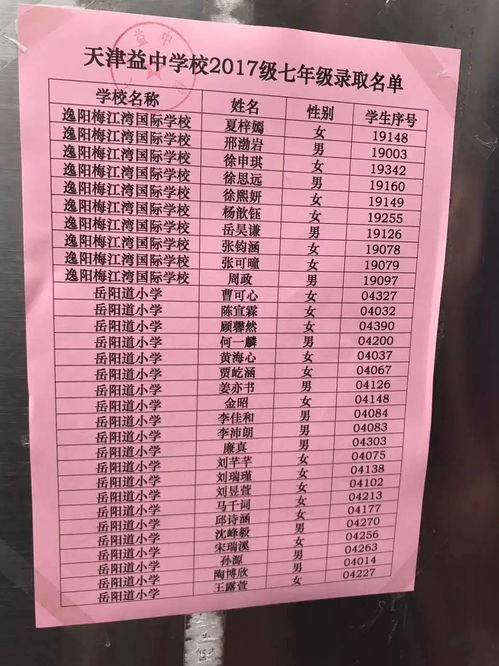 天津益中学校2017级七年级录取名单
学校名称 姓名 性别 学生序号
逸阳梅江湾国际学校 夏梓嫣 女 19148
逸阳梅江湾国际学校 邢渤岩 男 19003
逸阳梅江湾国际学校 徐申琪 女 19342
逸阳梅江湾国际学校 徐思远 男 19160
逸阳梅江湾国际学校 徐熙妍 女 19149
逸阳梅江湾国际学校 杨歆钰 女 19255
逸阳梅江湾国际学校 岳昊谦 男 19126
逸阳梅江湾国际学校 张钧涵 女 19078
逸阳梅江湾国际学校 张可曈 女 19079
逸阳梅江湾国际学校 周政 男 19097
岳阳道小学 曹可心 女 04327
岳阳道小学 陈宣霖 女 04032
岳阳道小学 顾馨然 女 04390
岳阳道小学 何一麟 男 04200
岳阳道小学 黄海心 女 04037
岳阳道小学 贾屹涵 女 04067
岳阳道小学 姜亦书 男 04126
岳阳道小学 金昭 女 04148
岳阳道小学 李佳和 男 04084
岳阳道小学 李沛朗 男 04083
岳阳道小学 廉真 男 04303
岳阳道小学 刘芊芊 女 04075
岳阳道小学 刘瑞瑾 女 04138
岳阳道小学 刘昱萱 女 04102
岳阳道小学 马千词 女 04213
岳阳道小学 邱诗涵 女 04177
岳阳道小学 沈峰毅 男 04270
岳阳道小学 宋瑞溪 女 04256
岳阳道小学 孙源 男 04263
岳阳道小学 陶博欣 女 04014
岳阳道小学 王露萱 女 04227